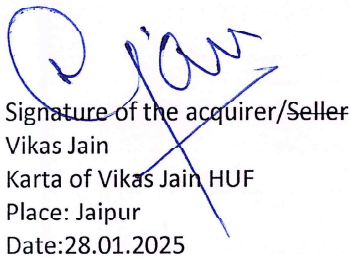 Signature of the acquirer/Seller
Vikas Jain
Karta of Vikas Jain HUF
Place: Jaipur
Date:28.01.2025